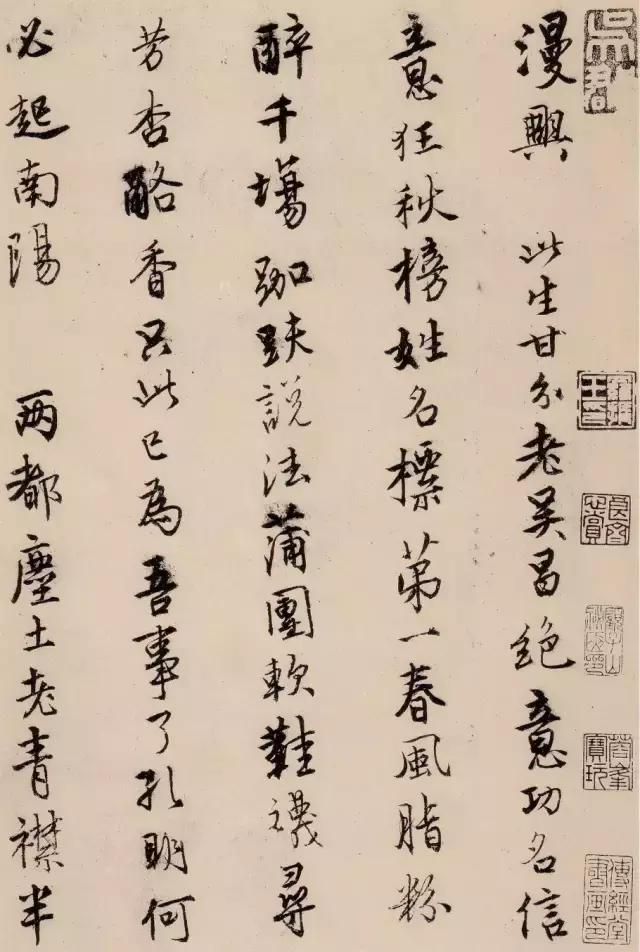 漫興 此生甘分老吳昌絕意功名信
意狂秋榜姓名標第一春風脂粉
醉千塲跏趺說法蒲團軟鞋襪尋
芳杏酪香只此已為吾事了孔明何
必起南陽 两都塵土老青襟半
蓉峯寶玩
傳經堂書畫印